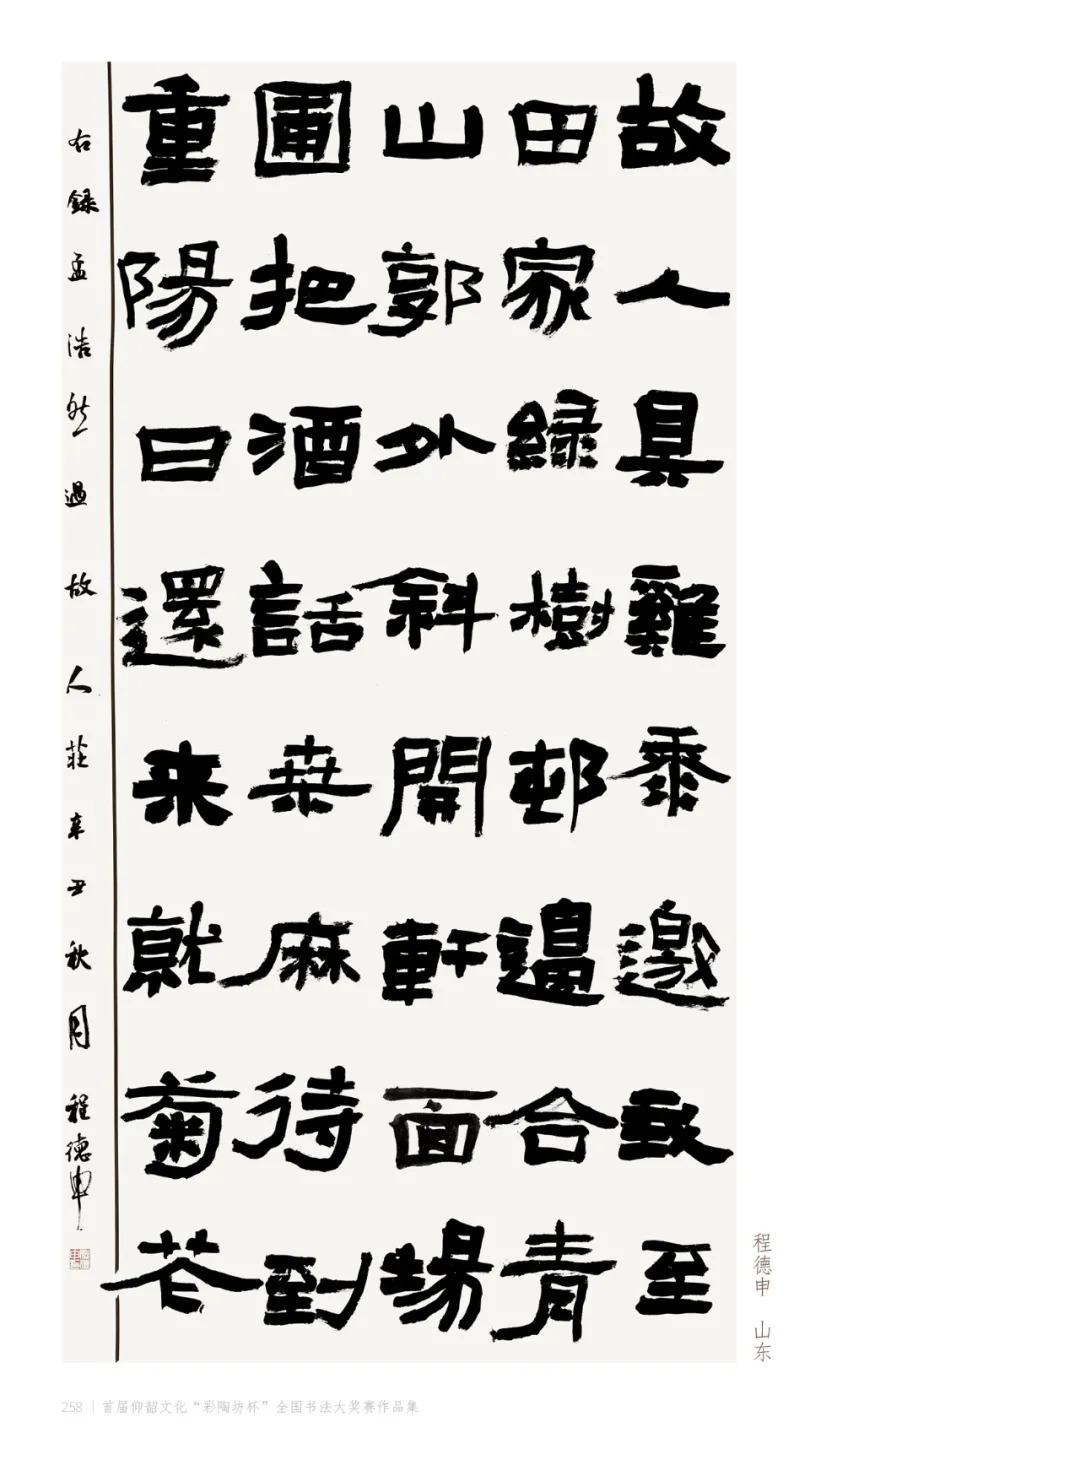 故人具雞黍邀我至
田家緑樹邨邊合青
山郭外斜開軒面場
圃把酒話桒麻待到
重陽日還来就菊花
右録孟浩然過故人莊辛丑秋月程德申
程德申 山东
258 | 首届仰韶文化“彩陶坊杯”全国书法大奖赛作品集